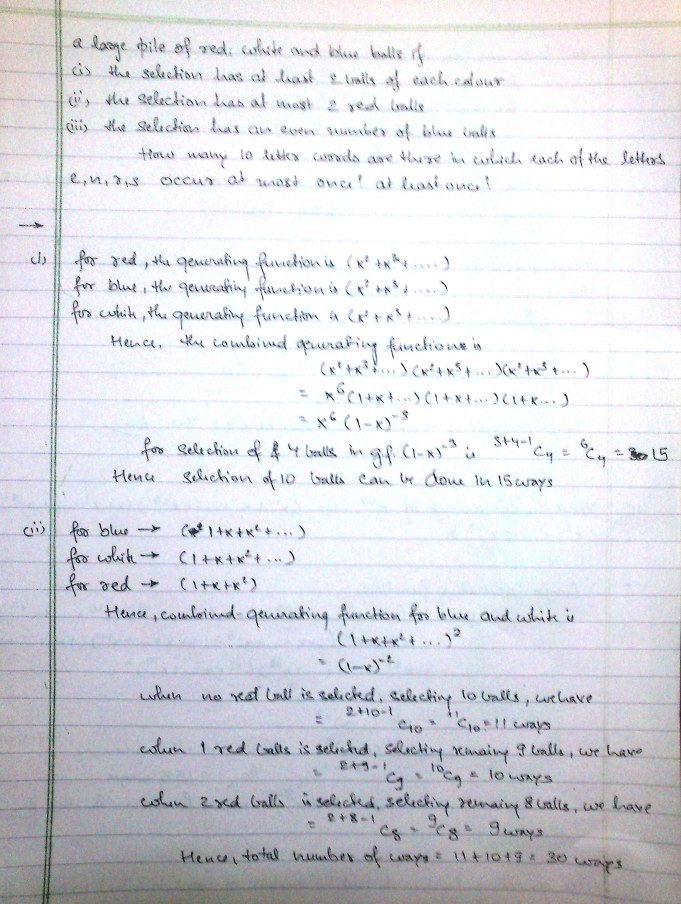 a large pile of red, white and blue balls if
(i) the selection has at least 2 balls of each colour
(ii) the selection has at most 2 red balls
(iii) the selection has an even number of blue balls
How many 10 letter words are there in which each of the letters
e, n, r, s occur at most once? at least once?
→
(i) for red, the generating function is (x² + x³ + ....)
for blue, the generating function is (x² + x³ + ....)
for white, the generating function is (x² + x³ + ....)
Hence, the combined generating functions is
(x² + x³ + ...) (x² + x³ + ...) (x² + x³ + ...)
= x⁶ (1+x+...) (1+x+...) (1+x...)
= x⁶ (1-x)⁻³
for selection of 4 balls in g.f. (1-x)⁻³ is ³⁺⁴⁻¹C₄ = ⁶C₄ = 15
Hence selection of 10 balls can be done in 15 ways
(ii) for blue → (1+x+x²+...)
for white → (1+x+x²+...)
for red → (1+x+x²)
Hence, combined generating function for blue and white is
(1+x+x²+...)²
= (1-x)⁻²
when no red ball is selected, selecting 10 balls, we have
= ²⁺¹⁰⁻¹C₁₀ = ¹¹C₁₀ = 11 ways
when 1 red balls is selected, selecting remaing 9 balls, we have
= ²⁺⁹⁻¹C₉ = ¹⁰C₉ = 10 ways
when 2 red balls is selected, selecting remaining 8 balls, we have
= ²⁺⁸⁻¹C₈ = ⁹C₈ = 9 ways
Hence, total number of ways = 11+10+9 = 30 ways